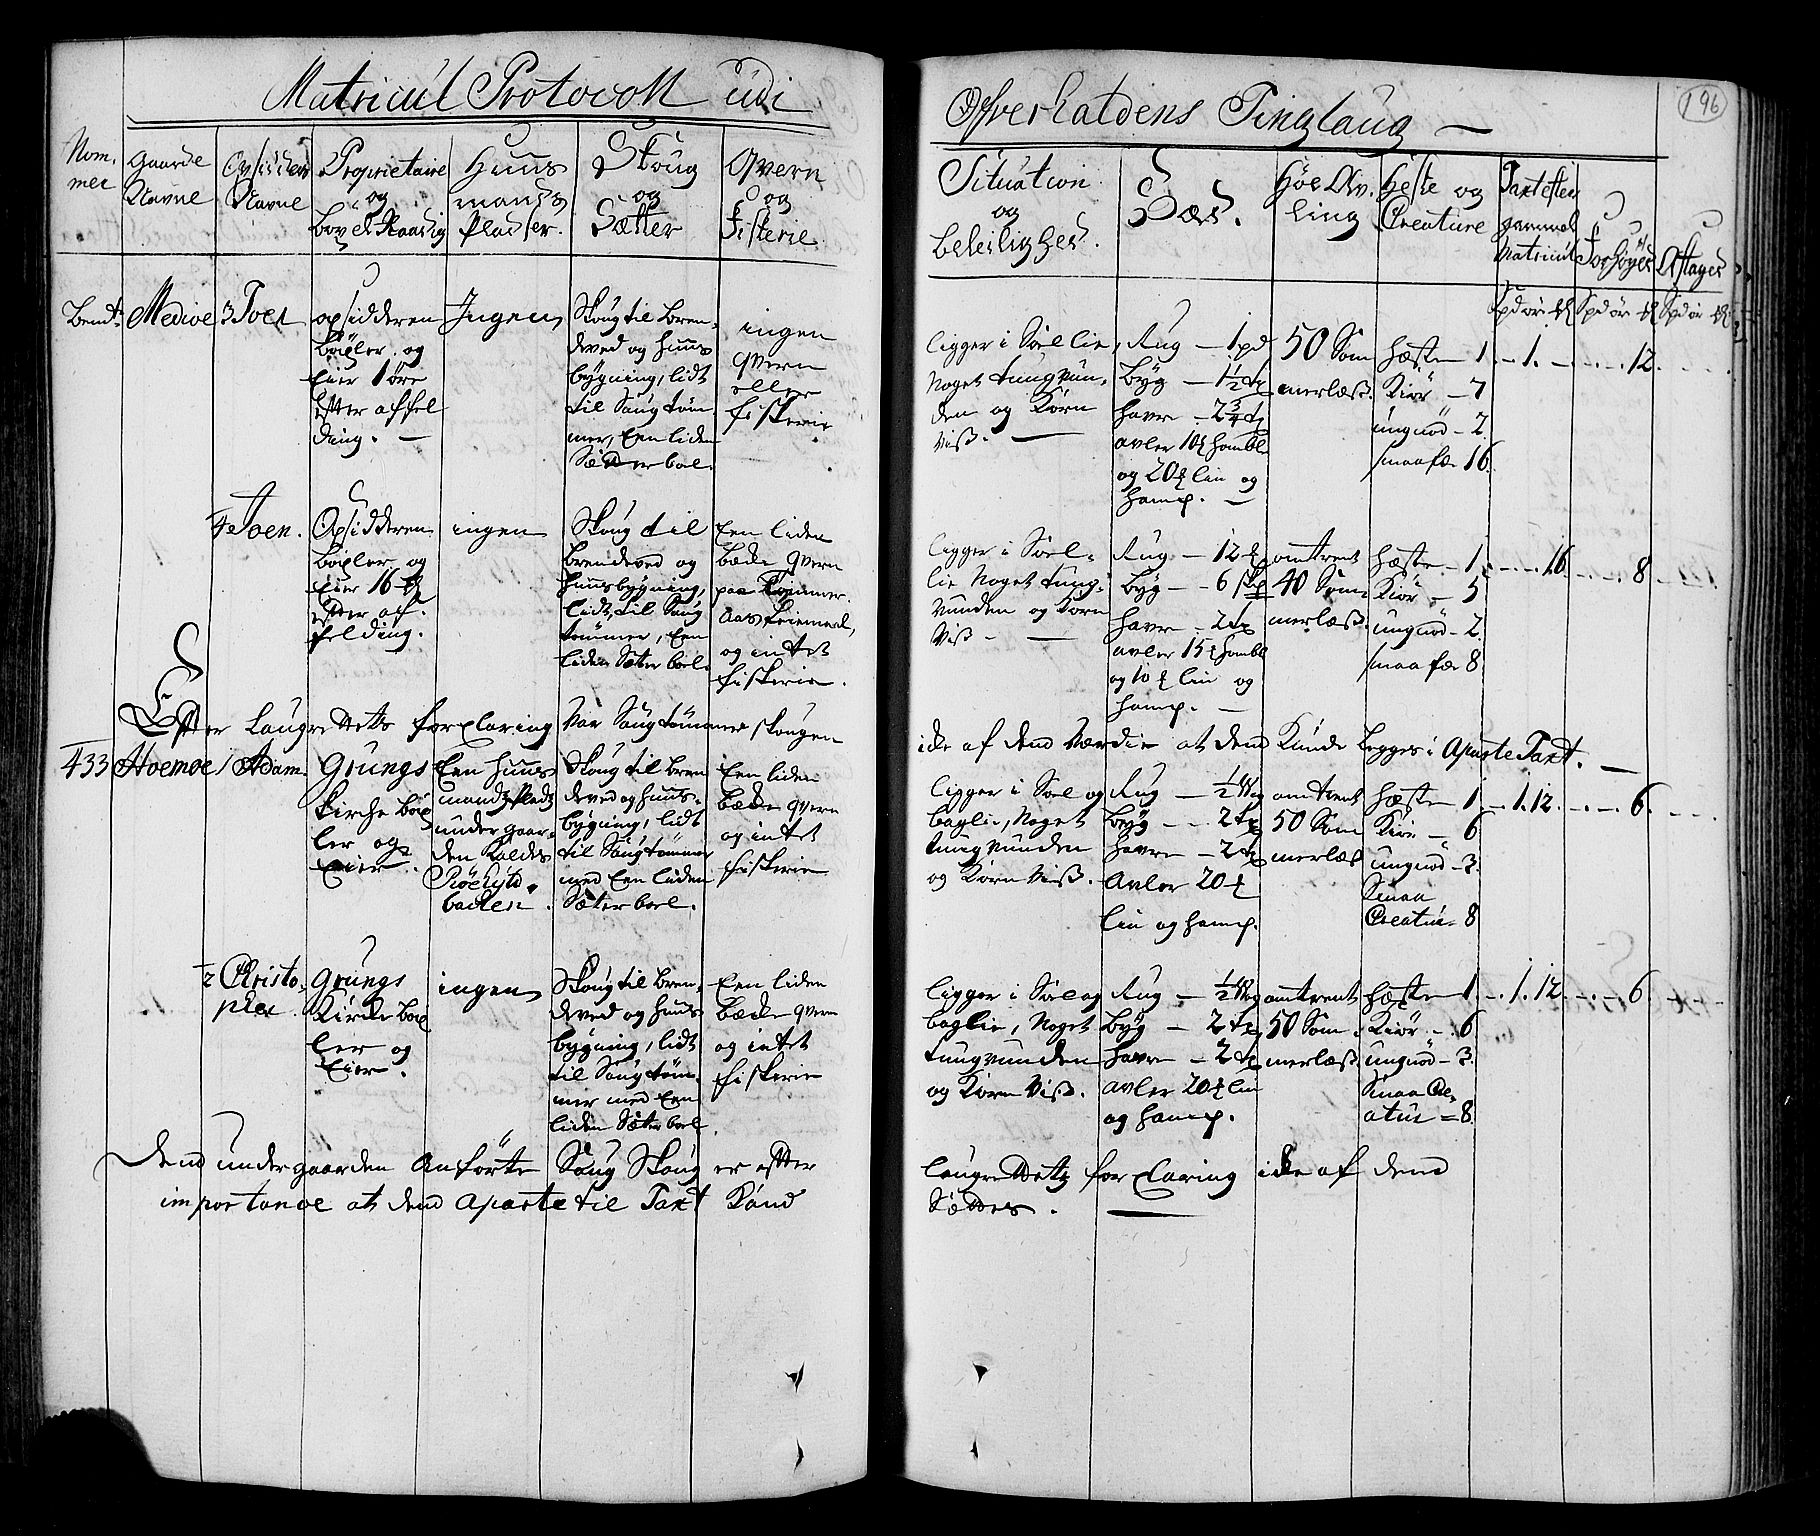 Matricul Protocoll udi
Ofverhaldens Tinglaug
196
Nom-
mer
Gaarde
Navne
Opsidderns
Navne
Proprietaire
og
böxel Raadig
Huus
mands
Pladser.
Skoug
og
Sætter
Qvern
og
Fiskerie.
Situation
og
beleilighed.
Sæd.
Höe Av-
ling
Heste og
Creature
Taxt efter
gammel
Matricul
Forhöyes
Aftages
Spd ör
Spd ör
Spd ör
Bemt:
Medioe
3 Joen
opsidderen
böxler og
Eier 1 öre
Efter affel
ding.
Ingen
Skoug til bren-
deved og huus
bygning, lidt
til Saug töm
mer, Een liden
Sædter boel.
ingen
qvern
eller
fiskerie
ligger i Soellie,
Noget tungvun-
den og Korn
Viß.
Rug - 1 pd
byg - 1½ tø
havre - 2¾ tø
avler 10 ℔ hombl
og 20 ℔ liin og
hamp.
50 Som
merlæß.
hæste 1.
Kiör - 7
ungnöd - 2
smaafæ 16.
1.
12.
4 Joen.
Opsidderen
böxler og
Eier 16
Efter af-
felding.
ingen
Skoug til
brendeved og
huusbygning,
lidt, til Saug
tömmer, Een
liden Sæter boel.
Een liden
bæcke qvern
paa
og intet
fiskerie.
ligger i Soel-
lie Noget tung-
vunden og Korn
Viß.
Rug - 12
byg - 6
havre - 2 tø
avler 15 ℔ hombl
og 10 ℔ liin og
hamp.
omtrent
40 Som-
merlæß.
hæste - 1.
Kiör - 5
ungnöd - 2.
smaa fæ 8
16.
8
Efter Laugrettets forclaring Var Saugtömmerskougen
icke af dend Værdie at dend Kunde legges i Aparte Taxt.
433
Hoemoe
1 Adam.
Grungs
Kirche böx
ler og
Eier.
Een huus
mands Plads
under gaar-
den Kaldes
backen.
Skoug til bren
deved og huus-
bygning, lidt
til Saugtömmer
med Een liden
Sæter boel.
Een liden
bæcke qvern
og intet
fiskerie
ligger i Soel og
baglie, Noget
tungvunden
og Korn Viß.
Rug - ½
byg - 2 tø
havre - 2 tø
Avler 20 ℔
liin og hamp.
omtrent
50 Som
merlæß
hæste 1.
Kiör - 6
ungnöd - 3.
Smaa
Creatur - 8
1. 12.
6.
2 Christo-
pher
Grungs
Kirche böx
ler og
Eier.
ingen
Skoug til bren-
deved og huus-
bygning, lidt
til Saug töm-
mer med Een
liden Sæter boel
Een liden
bæcke qvern
og intet
fiskerie
ligger i Soel og
baglie, Noget
tungvunden
og Korn Viß.
Rug - ½
byg - 2 tø
havre - 2 tø
avler 20 ℔ liin
og hamp.
omtrent
50 Som-
merlæß
hæste 1.
Kiör - 6
ungnöd - 3.
Smaa Cre-
atur = 8.
1. 12.
6
Dend under gaarden Anförte Saug Skoug er efter
Laugrettets forclaring icke af dend
importance at dend Aparte til Taxt Kand
Sættes.